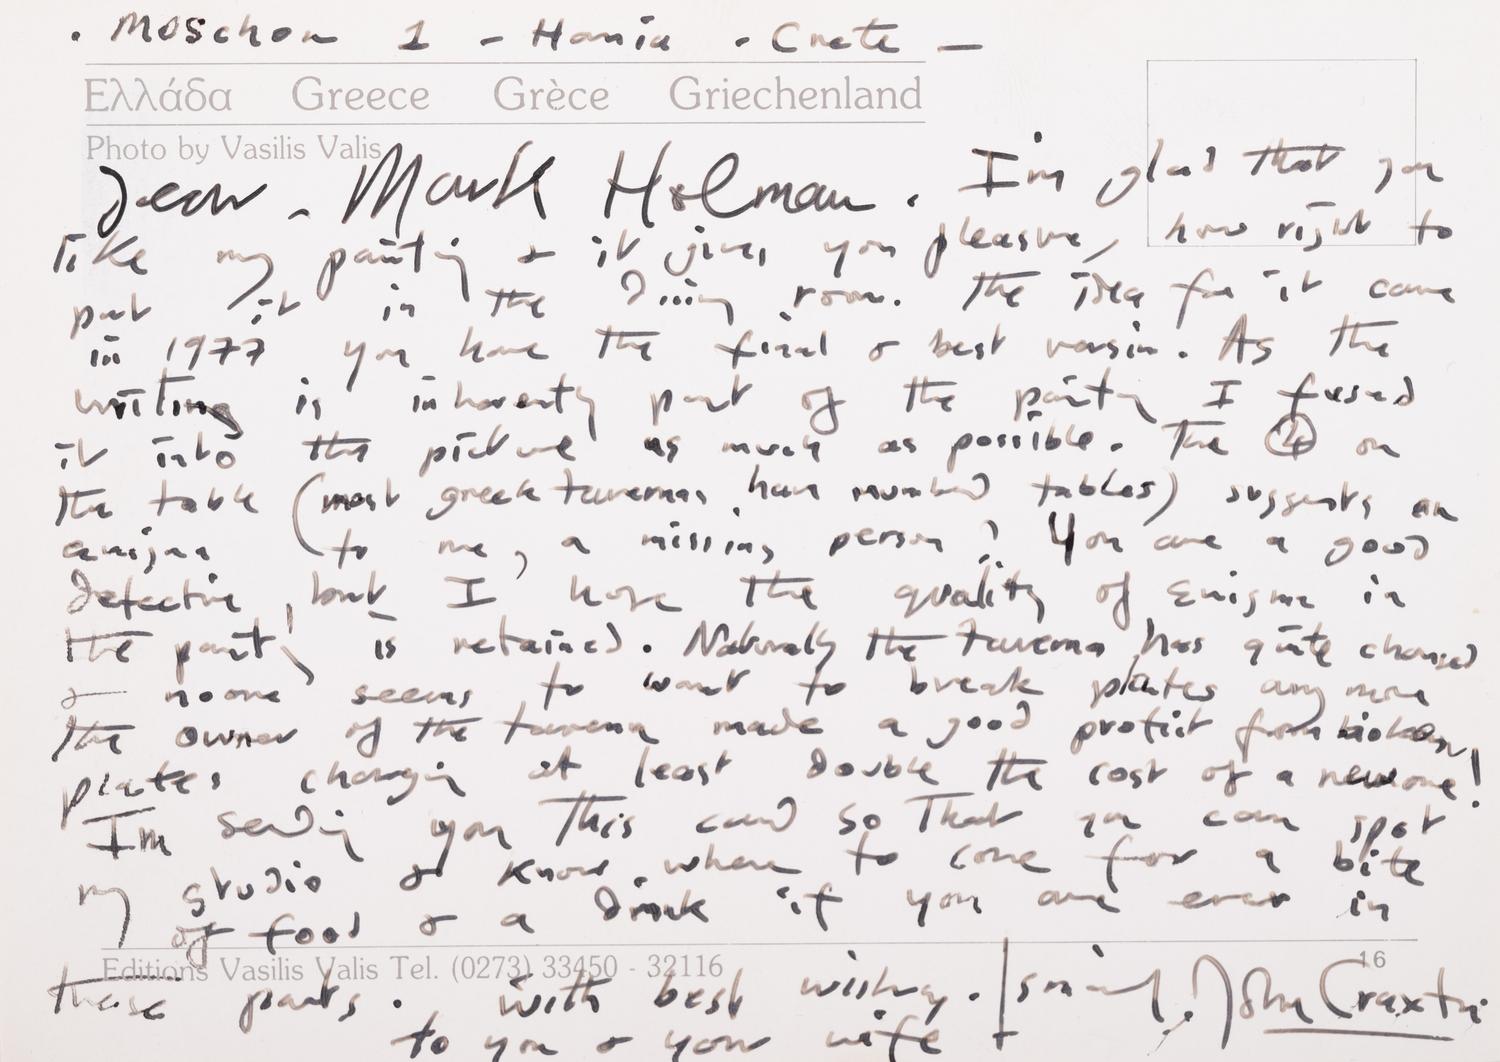 . Moschon 1 - Hania - Crete -
Ελλάδα Greece Grèce Griechenland
Photo by Vasilis Valis
Dear - Mark Holman. I'm glad that you
like my painting & it gives you pleasure, how right to
put it in the dining room. The idea for it came
in 1977 you have the final & best version. As the
writing is inherently part of the painting I fused
it into the picture as much as possible. The 4 on
the table (most greek tavernas have numbered tables) suggests an
enigma to me, a missing person? You are a good
detective, but I hope the quality of Enigma in
the painting is retained. Naturally the taverna has quite changed
& noone seems to want to break plates any more
the owner of the taverna made a good profit from broken
plates charging at least double the cost of a new one!
Im sending you this card so that you can spot
my studio & know where to come for a bite
of food & a drink if you are ever in
Editions Vasilis Valis Tel. (0273) 33450 - 32116
16
these parts. with best wishes. John Craxton
to you & your wife